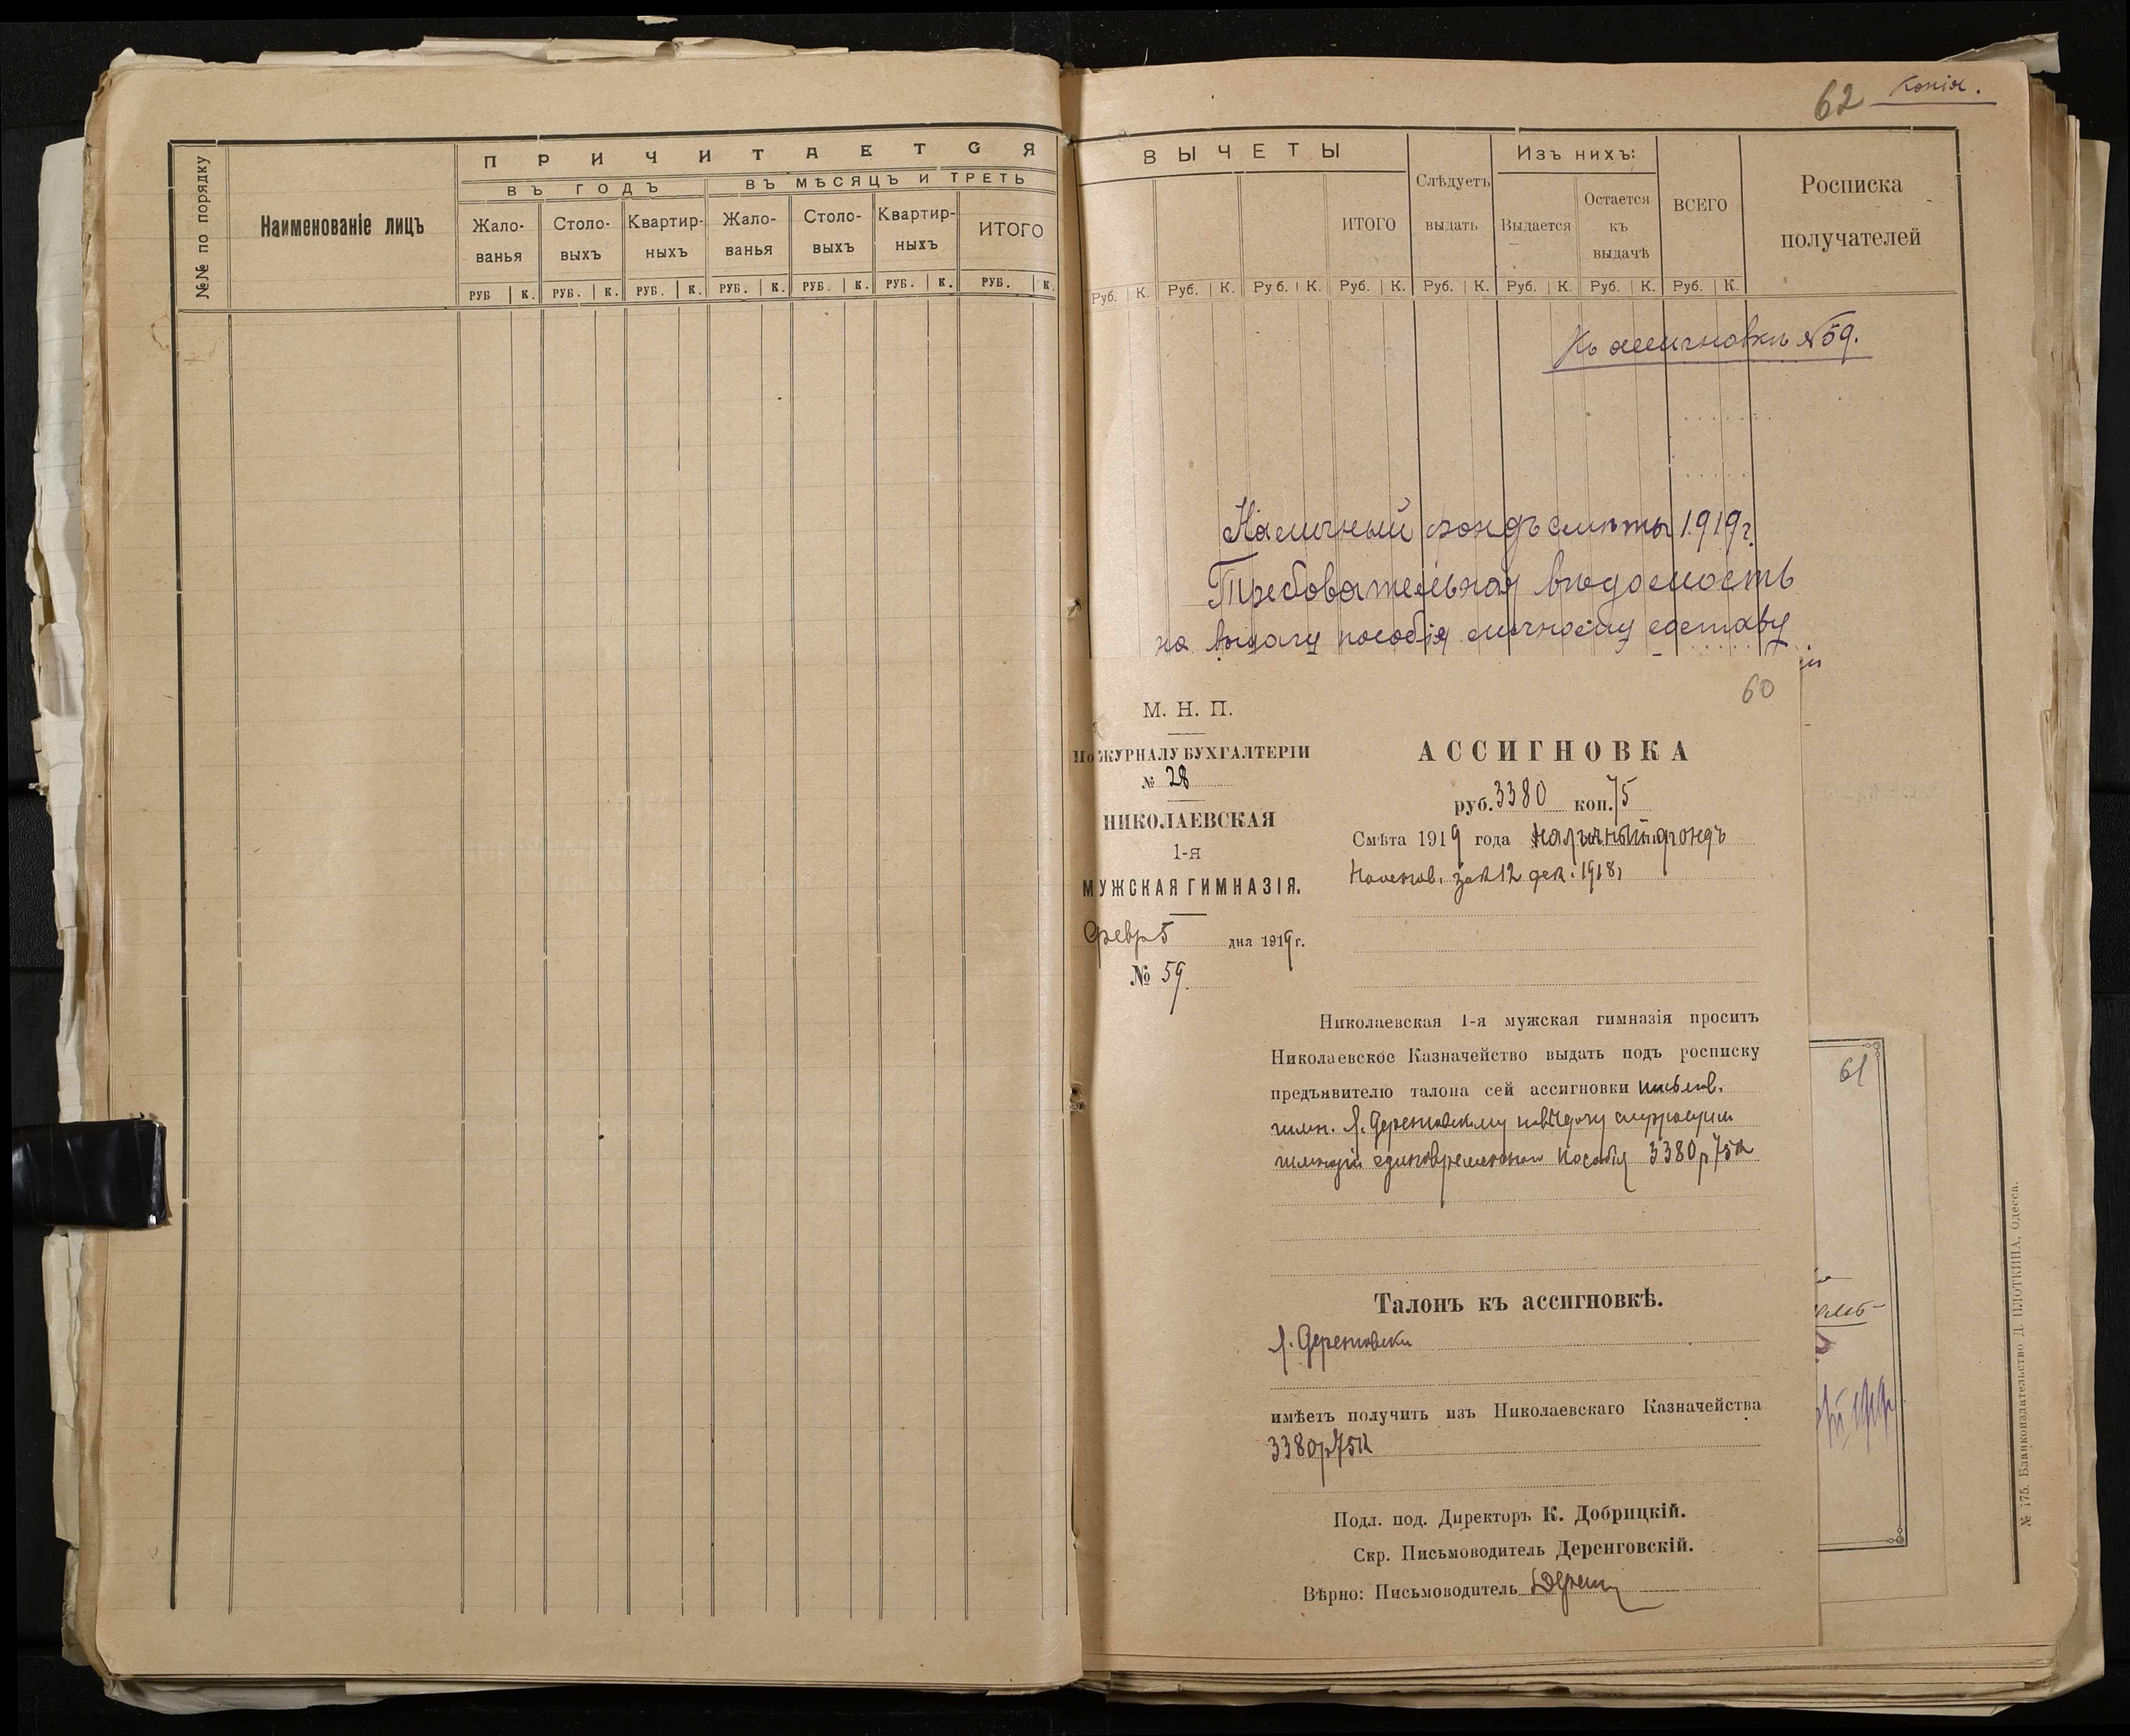 №№ по порядку
Наименованіе лицъ
ПРИЧИТАЕТСЯ
ВЪ ГОДЪ
ВЪ МѢСЯЦЪ И ТРЕТЬ
Жало-
ванья
Столо-
выхъ
Квартир-
ныхъ
Жало-
ванья
Столо-
выхъ
Квартир-
ныхъ
ИТОГО
РУБ К. РУБ. К. РУБ. К. РУБ. К. РУБ. К. РУБ. К. РУБ. К.
62 Копія.
ВЫЧЕТЫ
ИТОГО
Слѣдуетъ
выдать
Изъ нихъ:
Выдается
Остается
къ
выдачѣ
ВСЕГО
Росписка
получателей
Руб. К. Руб. К. Руб. К. Руб. К. Руб. К. Руб. К. Руб. К. Руб. К.
Къ ассигновкѣ №59.
Наличный фондъ смѣты 1919 г.
Требовательная вѣдомость
на выдачу пособія личному составу
60
М. Н. П.
По ЖУРНАЛУ БУХГАЛТЕРІИ
№ 28
НИКОЛАЕВСКАЯ
1-я
МУЖСКАЯ ГИМНАЗІЯ.
Февр 5 дня 1919 г.
№ 59.
АССИГНОВКА
руб. 3380 коп. 75
Смѣта 1919 года наличный фондъ
зак 12 дек. 1918,
Николаевская 1-я мужская гимназія проситъ
Николаевское Казначейство выдать подъ росписку
предъявителю талона сей ассигновки письмов.
гимн. Я. Деренговскому на выдачу служащим
гимназіи единовременнаго пособія 3380 р 75 к
Талонъ къ ассигновкѣ.
Я. Деренговски
имѣетъ получить изъ Николаевскаго Казначейства
3380 р 75 к
Подл. под. Директоръ К. Добрицкій.
Скр. Письмоводитель Деренговскій.
Вѣрно: Письмоводитель
61
№ 175. Бланкоиздательство Д. ПЛОТКИНА, Одесса.